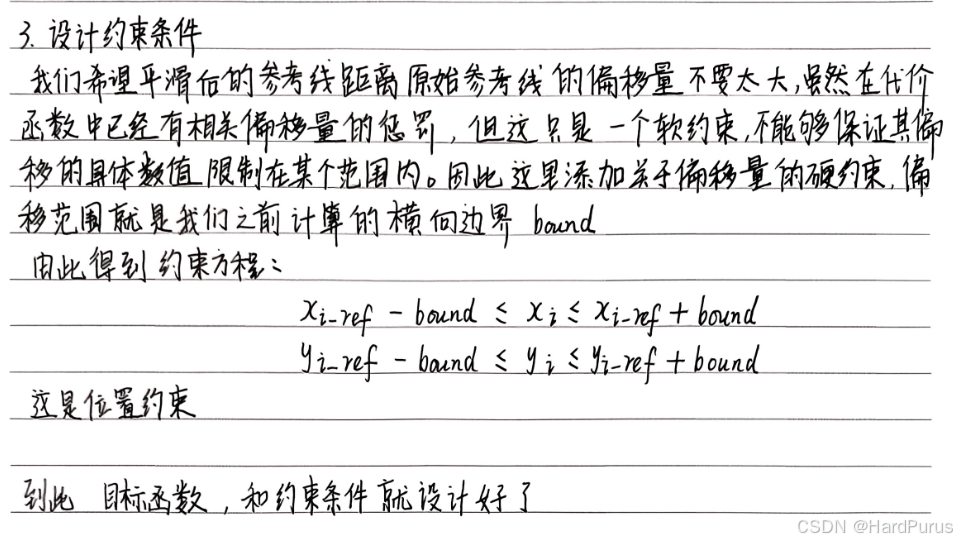 3. 设计约束条件
我们希望平滑后的参考线距离原始参考线的偏移量不要太大,虽然在代价
函数中已经有相关偏移量的惩罚,但这只是一个软约束,不能够保证其偏
移的具体数值限制在某个范围内。因此这里添加关于偏移量的硬约束,偏
移范围就是我们之前计算的横向边界 bound
由此得到约束方程:
x_{i-ref} - bound ≤ x_i ≤ x_{i-ref} + bound
y_{i-ref} - bound ≤ y_i ≤ y_{i-ref} + bound
这是位置约束
到此 目标函数,和约束条件就设计好了
CSDN @HardPurus